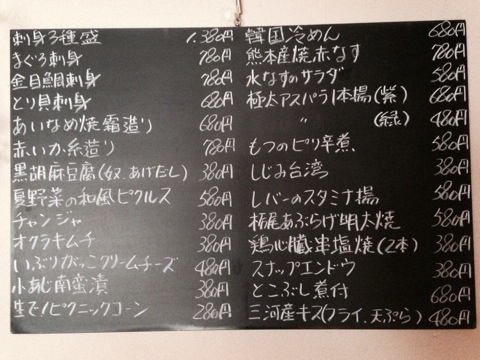 刺身3種盛 1,380円
まぐろ刺身 780円
金目鯛刺身 780円
とり貝刺身 680円
あいなめ焼霜造り 680円
赤いか糸造り 780円
黒胡麻豆腐(奴、あげだし) 380円
夏野菜の和風ピクルス 580円
チャンジャ 380円
オクラキムチ 380円
いぶりがっこクリームチーズ 480円
小あじ南蛮漬 380円
生で!ピクニックコーン 280円
韓国冷めん 680円
熊本産焼赤なす 780円
水なすのサラダ 580円
極太アスパラ1本揚(紫) 680円
〃 (緑) 480円
もつのピリ辛煮 580円
しじみ台湾 580円
レバーのスタミナ揚 580円
栃尾あぶらげ明太焼 580円
鶏心臓串塩焼(2本) 380円
スナップエンドウ 380円
とこぶし煮付 680円
三河産キス(フライ、天ぷら) 480円